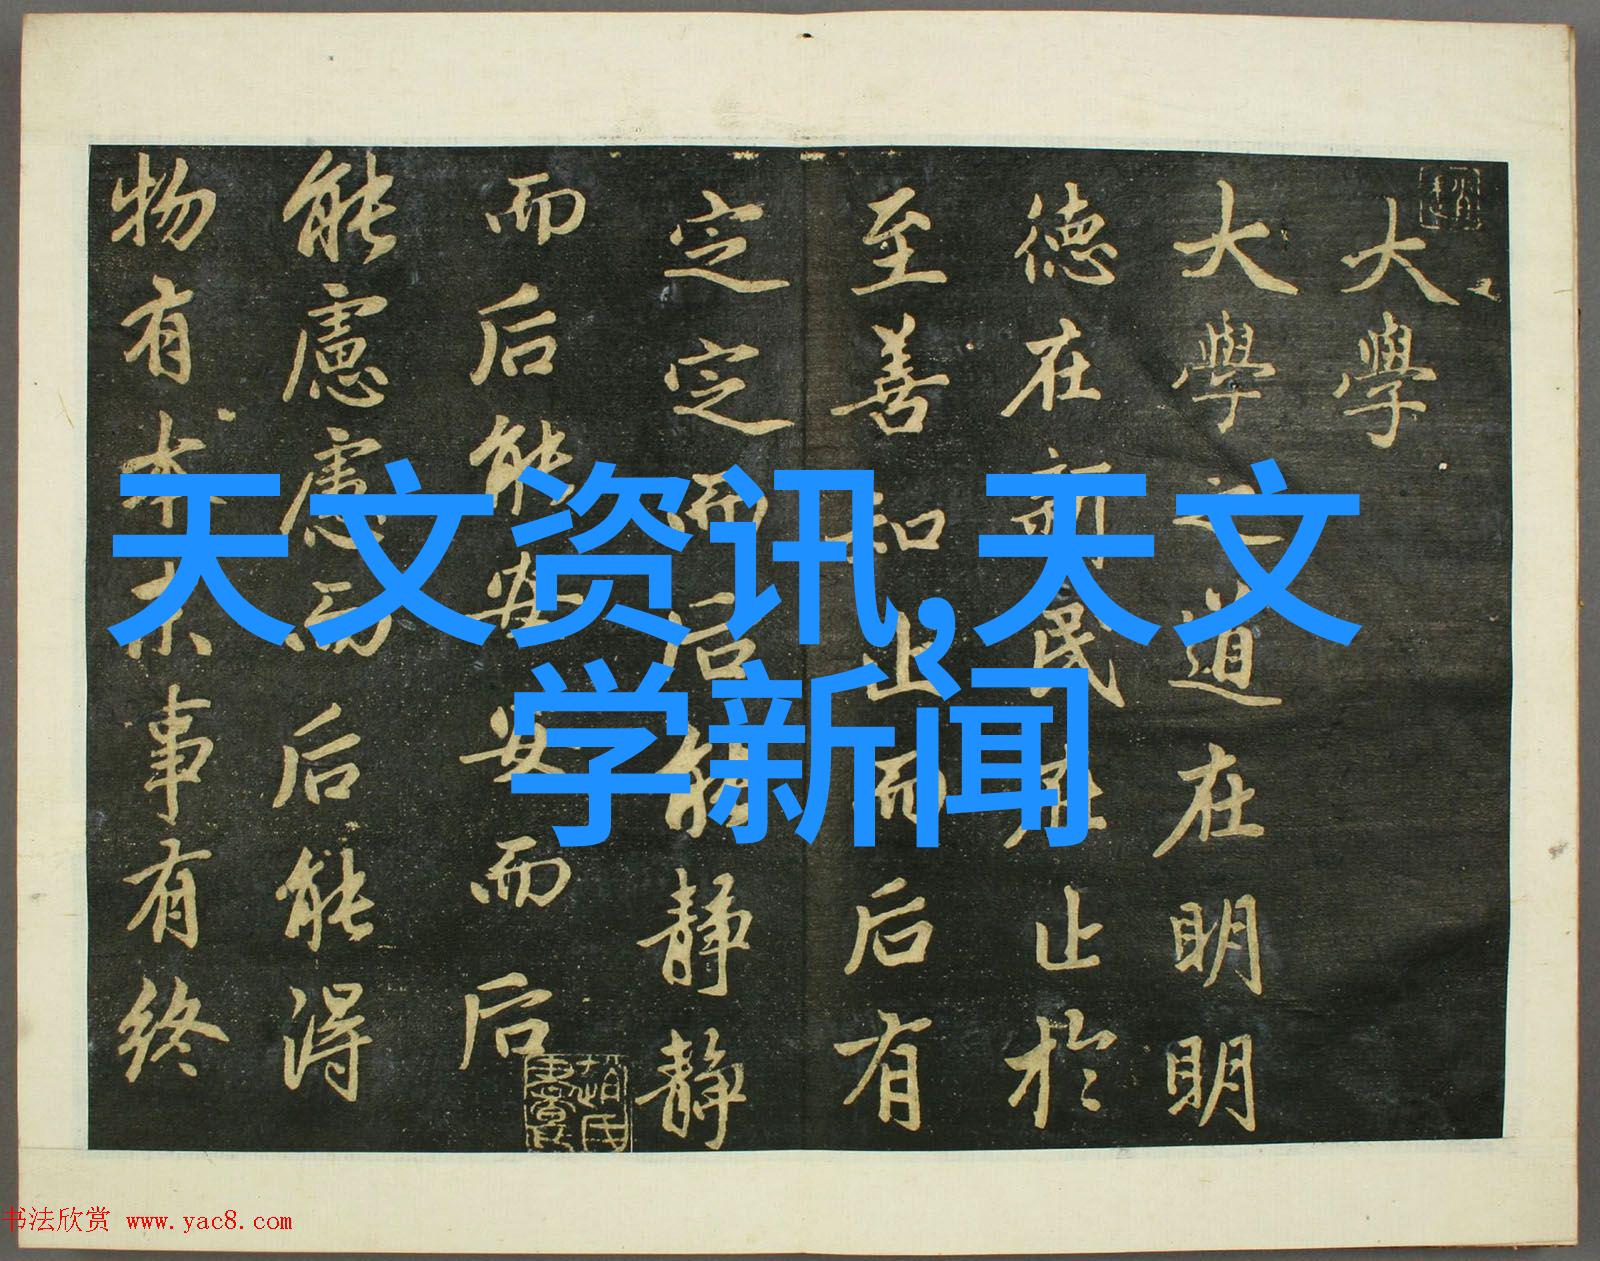 大學
大學之道在明明
德在新民在止於
至善知止而后有
定定而后能静静
而后能安安而后
能慮慮而后能得
物有本末事有終
天文资讯,天文
学新闻
书法欣赏 www.yac8.com